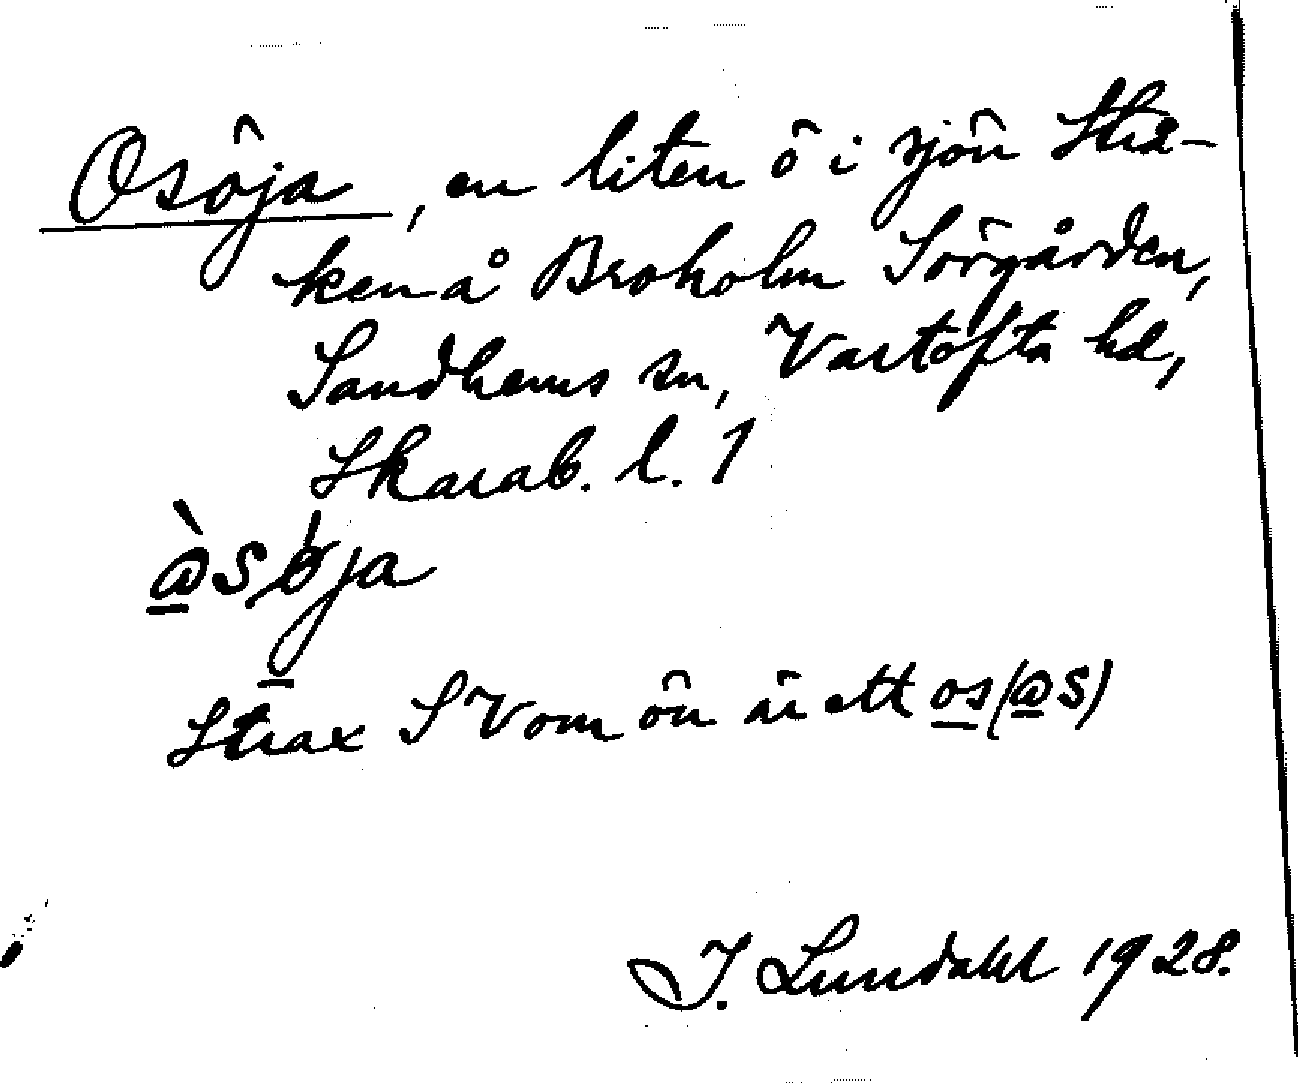 Osöja, en liten ö i sjön Strå-
ken å Broholm Sörgården,
Sandhems sn, Vartofta hd,
Skarab. l. 1
Strax SV om ön är ett os (@s)
I. Lundahl 1928.